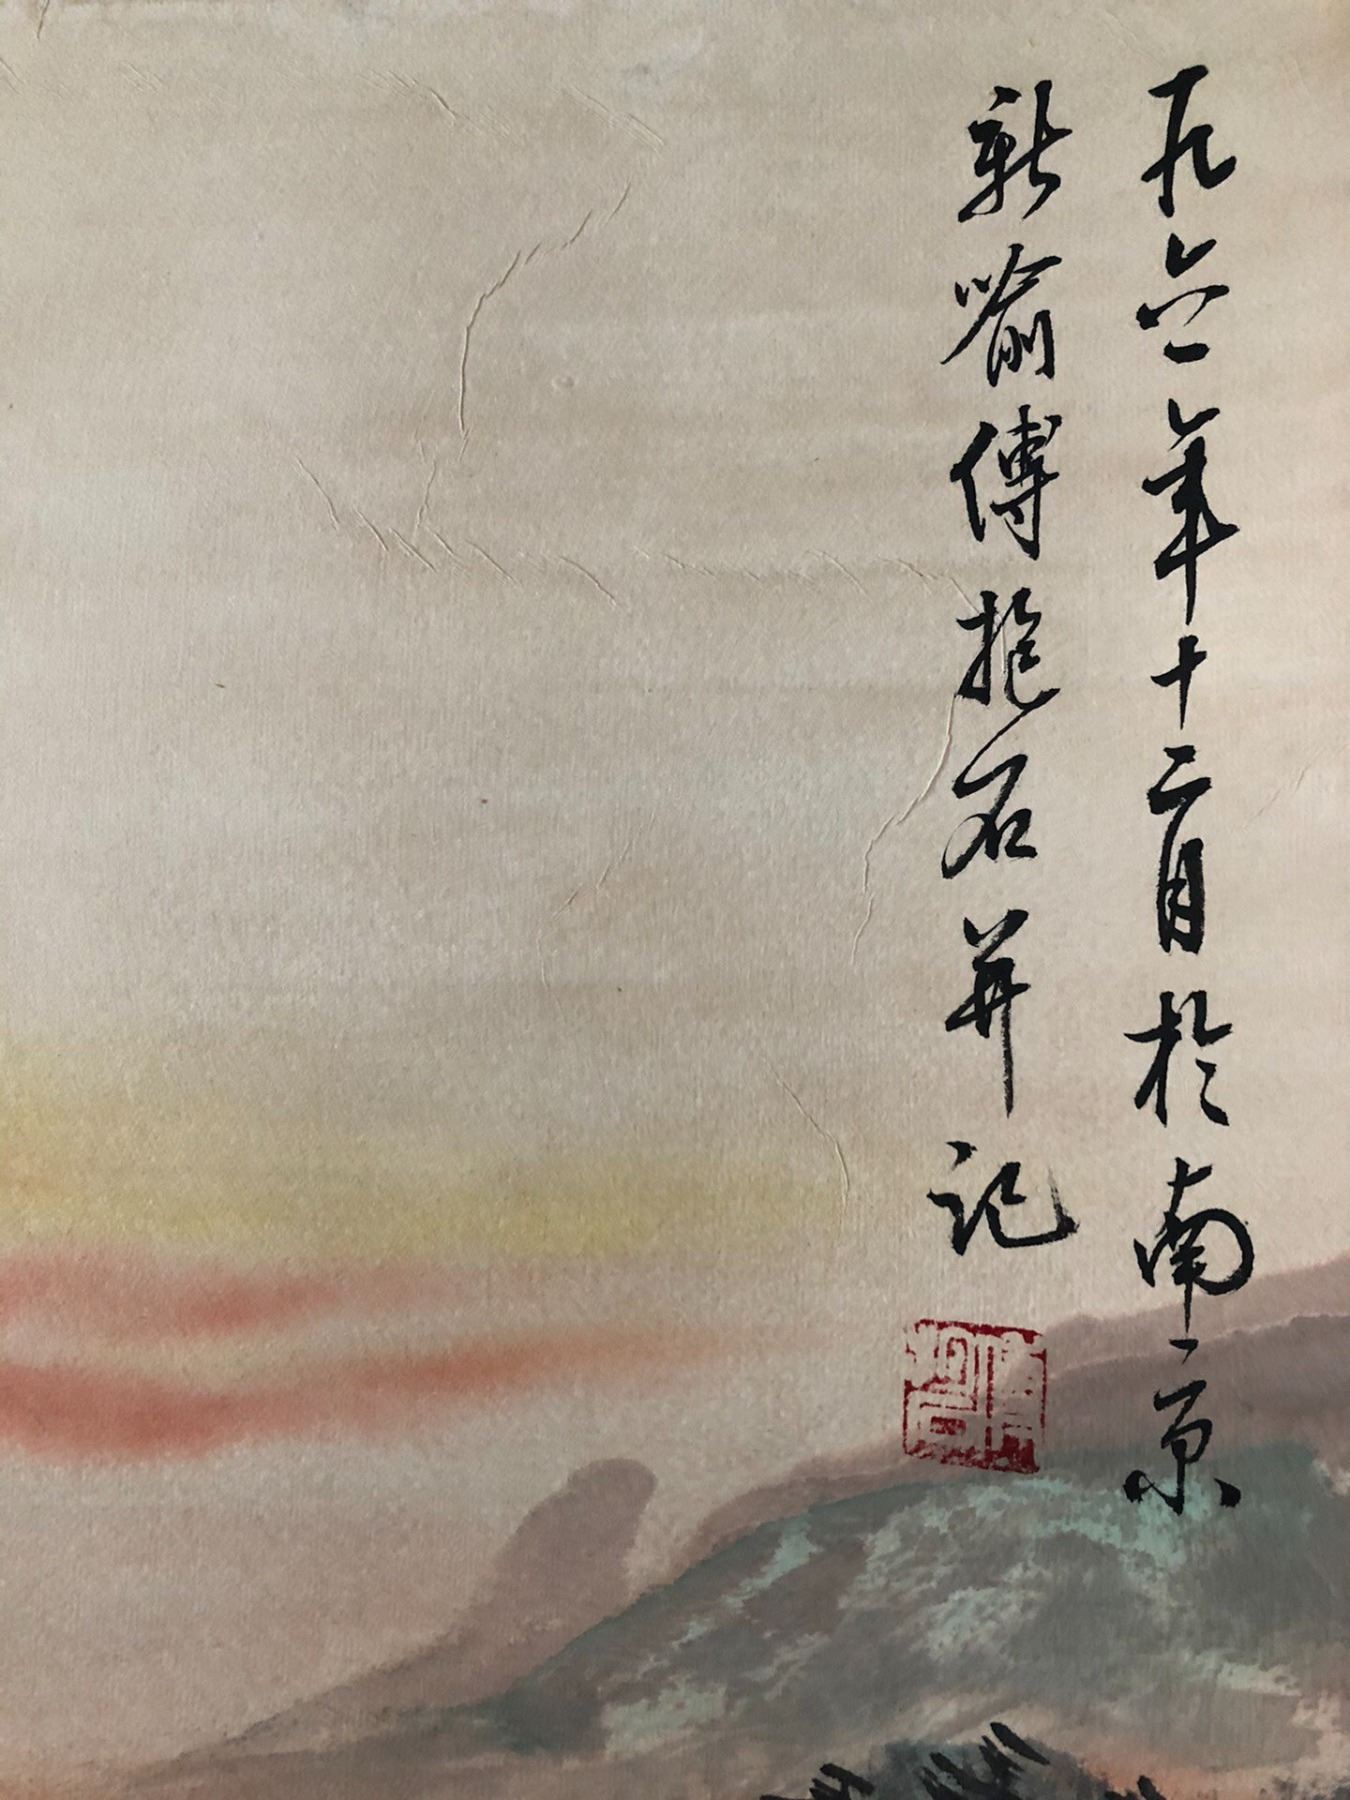 一九六一年十二月於南京
新喻傅抱石并记